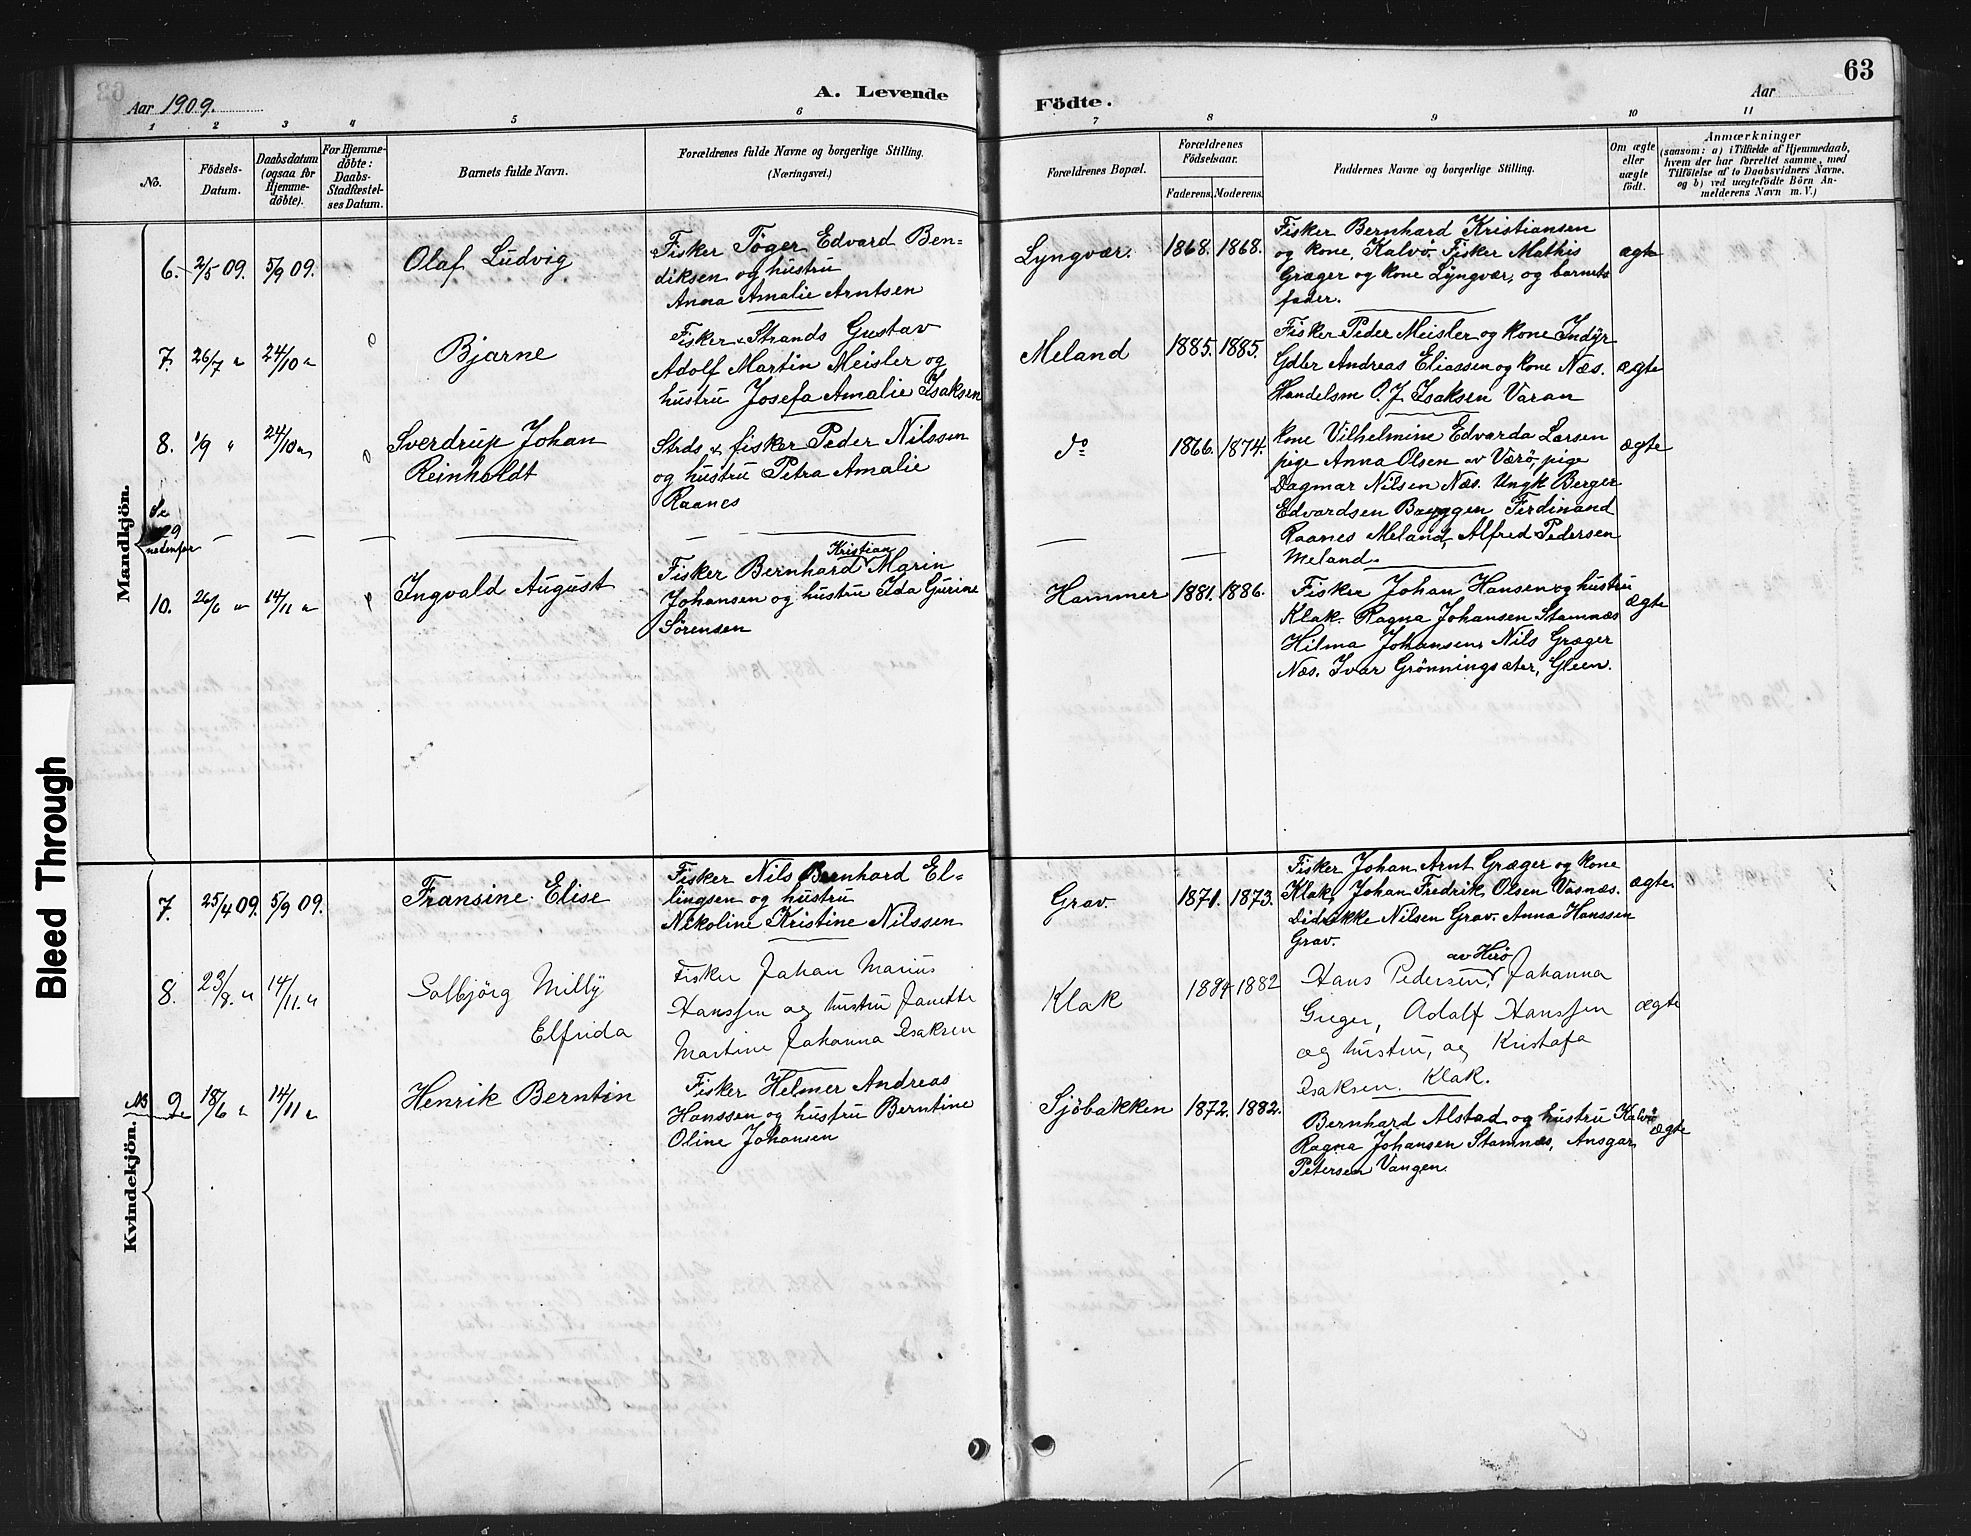 63
Aar 1909.
A. Levende
Födte.
Aar
1 2 3 4 5 6 7 8 9 10 11
No.
Födsels-
Datum.
Daabsdatum
(ogsaa for
Hjemme-
döbte).
For Hjemme-
döbte:
Daabs-
Stadfæstel-
ses Datum.
Barnets fulde Navn.
Forældrenes fulde Navne og borgerlige Stilling.
(Næringsvei.)
Forældrenes Bopæl.
Forældrenes
Födselsaar.
Faderens. Moderens.
Faddernes Navne og borgerlige Stilling.
Om ægte
eller
uægte
født.
Anmærkninger
(saasom: a) i Tilfælde af Hjemmedaab,
hvem der har forrettet samme, med
Tilföielse af to Daabsvidners Navne.
og b) ved uægtefödte Börn An-
melderens Navn m. V.)
Mandkjön.
6. 2/5 09. 5/9 09.
Olaf Ludvig
Fisker Töger Edvard Ben=
diksen og hustru
Anna Amalie Arntsen
Lyngvær. 1868. 1868.
Fisker Bernhard Kristiansen
og kone, Kalvö. Fisker Mathis
Græger og kone Lyngvær, og barnets
fader.
ægte
7. 26/7 " 24/10 "
Bjarne
Fisker & Strands Gustav
Adolf Martin Meisler og
hustru Josefa Amalie Isaksen
Meland 1885. 1885.
Fisker Peder Meisler og kone Indyr
Gdbr Andreas Eliassen og kone Næs.
Handelsm O. J. Isaksen Varan
ægte
8. 1/9 " 24/10 "
Sverdrup Johan
Reinholdt
Strds & fisker Peder Nilssen
og hustru Petra Amalie
Raanes
do 1866. 1874.
kone Vilhelmine Edvarda Larsen
pige Anna Olsen av Værö, pige
Dagmar Nilsen Næs. Ungk Berger
Edvardsen Bayggen Ferdinand
Raanes Meland, Alfred Pedersen
Meland.
ægte
Se
9
nedenfor
10. 26/6 " 14/11 "
Ingvald August
Kristian
Fisker Bernhard Marin
Johansen og hustru Ida Gurine
Sörensen
Hammer 1881. 1886.
Fisker Johan Hansen og hustru
Klak. Ragna Johansen Stamnæs
Hilma Johansen, Nils Græger
Næs. Ivar Grönningsæter, Gleen.
ægte
Bleed Through
Kvindekjön.
7. 25/4 09. 5/9 09.
Fransine Elise
Fisker Nils Bernhard El=
lingsen og hustru
Nikoline Kristine Nilssen
Grav. 1871. 1873.
Fisker Johan Arnt Græger og kone
Klak, Johan Fredrik Olsen Vasnæs.
Didrikke Nilsen Grav. Anna Hanssen
Grav.
ægte
8. 23/8. " 14/11. "
Solbjörg Milly
Elfrida
Fisker Johan Marius
Hanssen og hustru Janette
Martine Johanna Isaksen
Klak 1884 1882
av Herö
Hans Pedersen, Johanna
Greger, Adolf Hanssen
og hustru, og Kristofa
Isaksen. Klak.
ægte
NB 9. 18/6 " 14/11 "
Henrik Berntin
Fisker Helmer Andreas
Hanssen og hustru Berntine
Oline Johansen
Sjöbakken 1872. 1882.
Bernhard Alstad og hustru Kalvö
Ragna Johansen Stamnæs, Ansgar
Petersen Vangen.
ægte